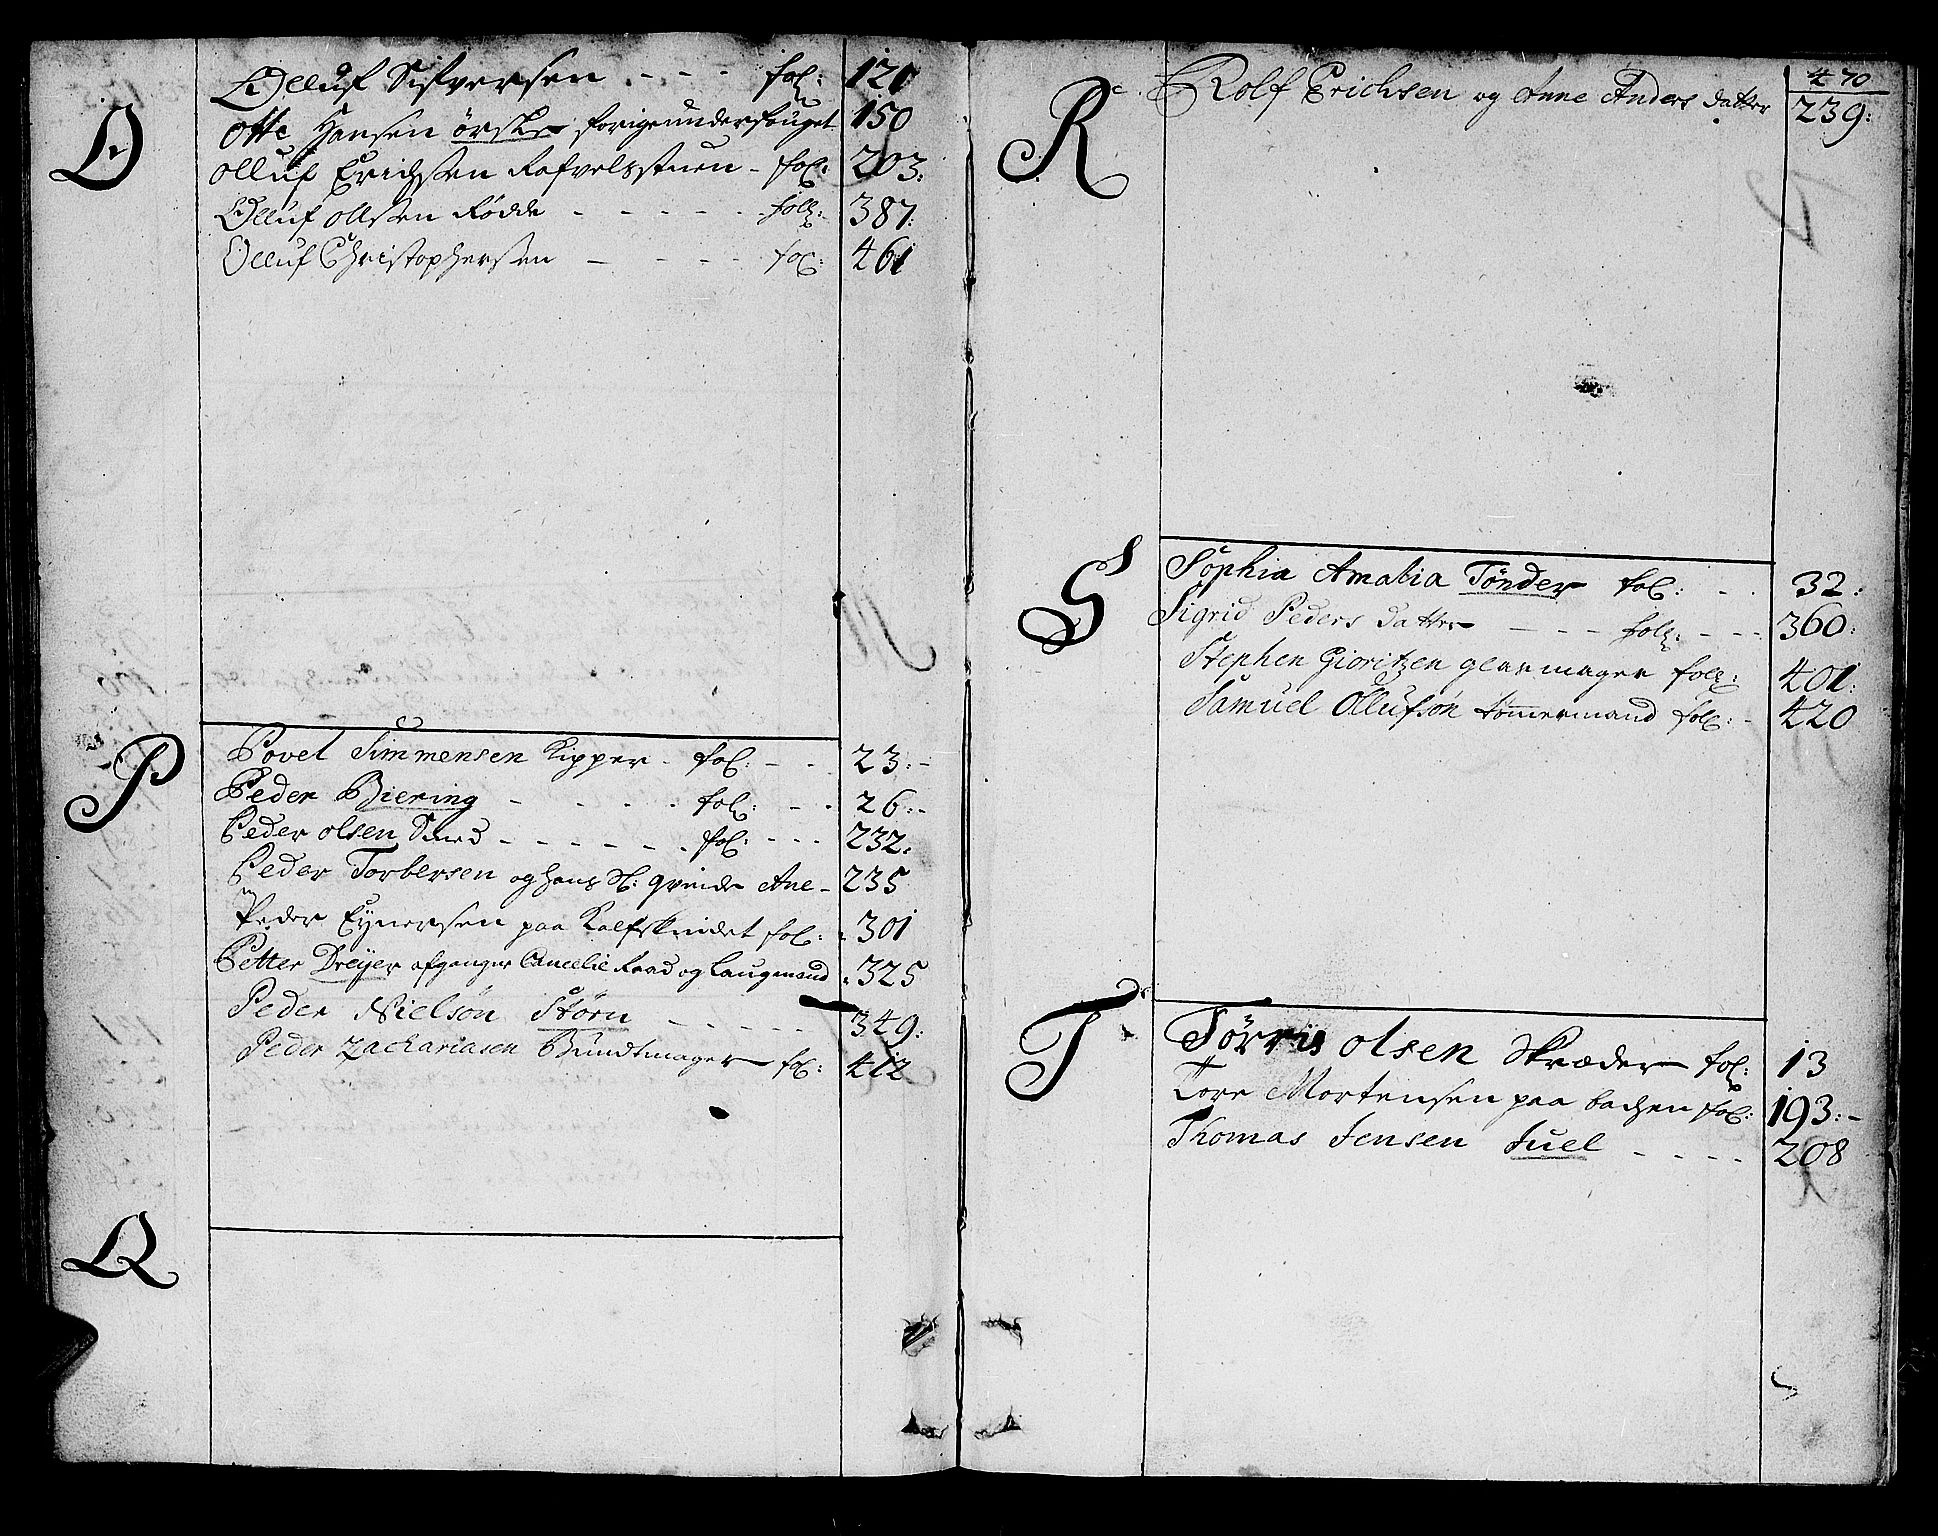 O
Olluf Sifversen - - - fol: 121
Otte Hansen Ørsk forige underfouget 150
Olluf Erichsen Rafvelsstuen - fol: 203:
Olluf Olssen Rødde - - - - - foll: 387:
Olluf Christophersen - - - - fol: 461
P
Povel Simmensen Kipper - fol: - - 23:-
Peder Biering - - - - fol: - - 26:-
Peder olsen Smed - - - - - - fol: - - - 232:
Peder Torbersen og hans Sl: qvinde Ane - 235
Peder Eynersen paa Kalfskindet fol: 301
Petter Dreyer afganger Cancelie Raad og Laugmand 325
Peder Nielsøn Størn - - - - - - 349:
Peder Zachariasen Bundtmager fol: 412
Q
470
R
Rolf Erichsen og Anne Anders datter 239:
S
Sophia Amalia Tønder fol: - - 32:
Sigrid Peders datter - - - - foll: - - - 360:
Stephen Gioritzen glarmager foll: 401:
Samuel Ollufsøn tømmermand fol: - 420
T
Tørris olsen Skræder fol: 13
Tore Mortensen paa bachen fol: 193:-
Thomas Jensen Juel - - - - 208